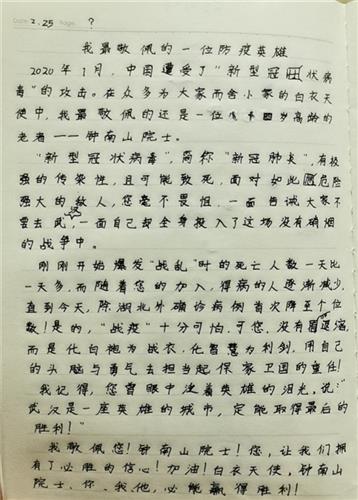 Date 2.25 Page ?
我最敬佩的一位防疫英雄
2020年1月，中国遭受了“新型冠状病
毒”的攻击。在众多为大家而舍小家的白衣天
使中，我最敬佩的还是一位高龄的
老者——钟南山院士。
“新型冠状病毒”，简称“新冠肺炎”，有极
强的传染性，且可能致死，面对如此危险
强大的敌人，您毫不畏惧，一面告诫大家不
要去武汉，一面自己却全身投入了这场没有硝烟
的战争中。
刚刚开始爆发“战乱”时的死亡人数一天比
一天多，而随着您的加入，得病的人逐渐减少，
直到今天，除湖北外确诊病例首次降至个位
数！是的，“战疫”十分可怕，可您，没有退缩，
而是化白袍为战衣，化智慧为利剑，用自己
的头脑与勇气去担当起保家卫国的重任！
我记得，您曾眼中泛着英雄的泪光，说：“
武汉是一座英雄的城市，定能取得最后的
胜利！”
我敬佩您！钟南山院士！您，让我们拥
有了必胜的信心！加油！白衣天使，钟南山
院士，你、我、他，必能赢得胜利！